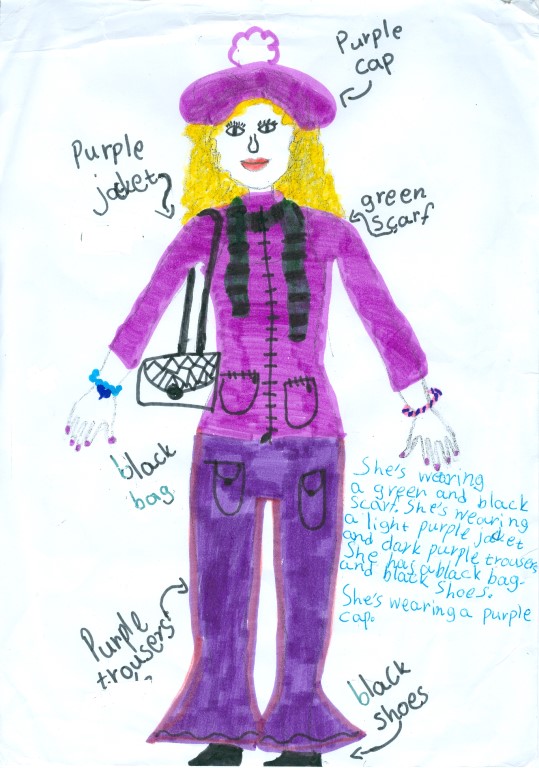 Purple
cap
Purple
jacket
green
scarf
black
bag.
She's wearing
a green and black
scarf. She's wearing
a light purple jacket
and dark purple trousers
She has a black bag.
and black shoes.
She's wearing a purple
cap.
Purple
trousers
black
shoes